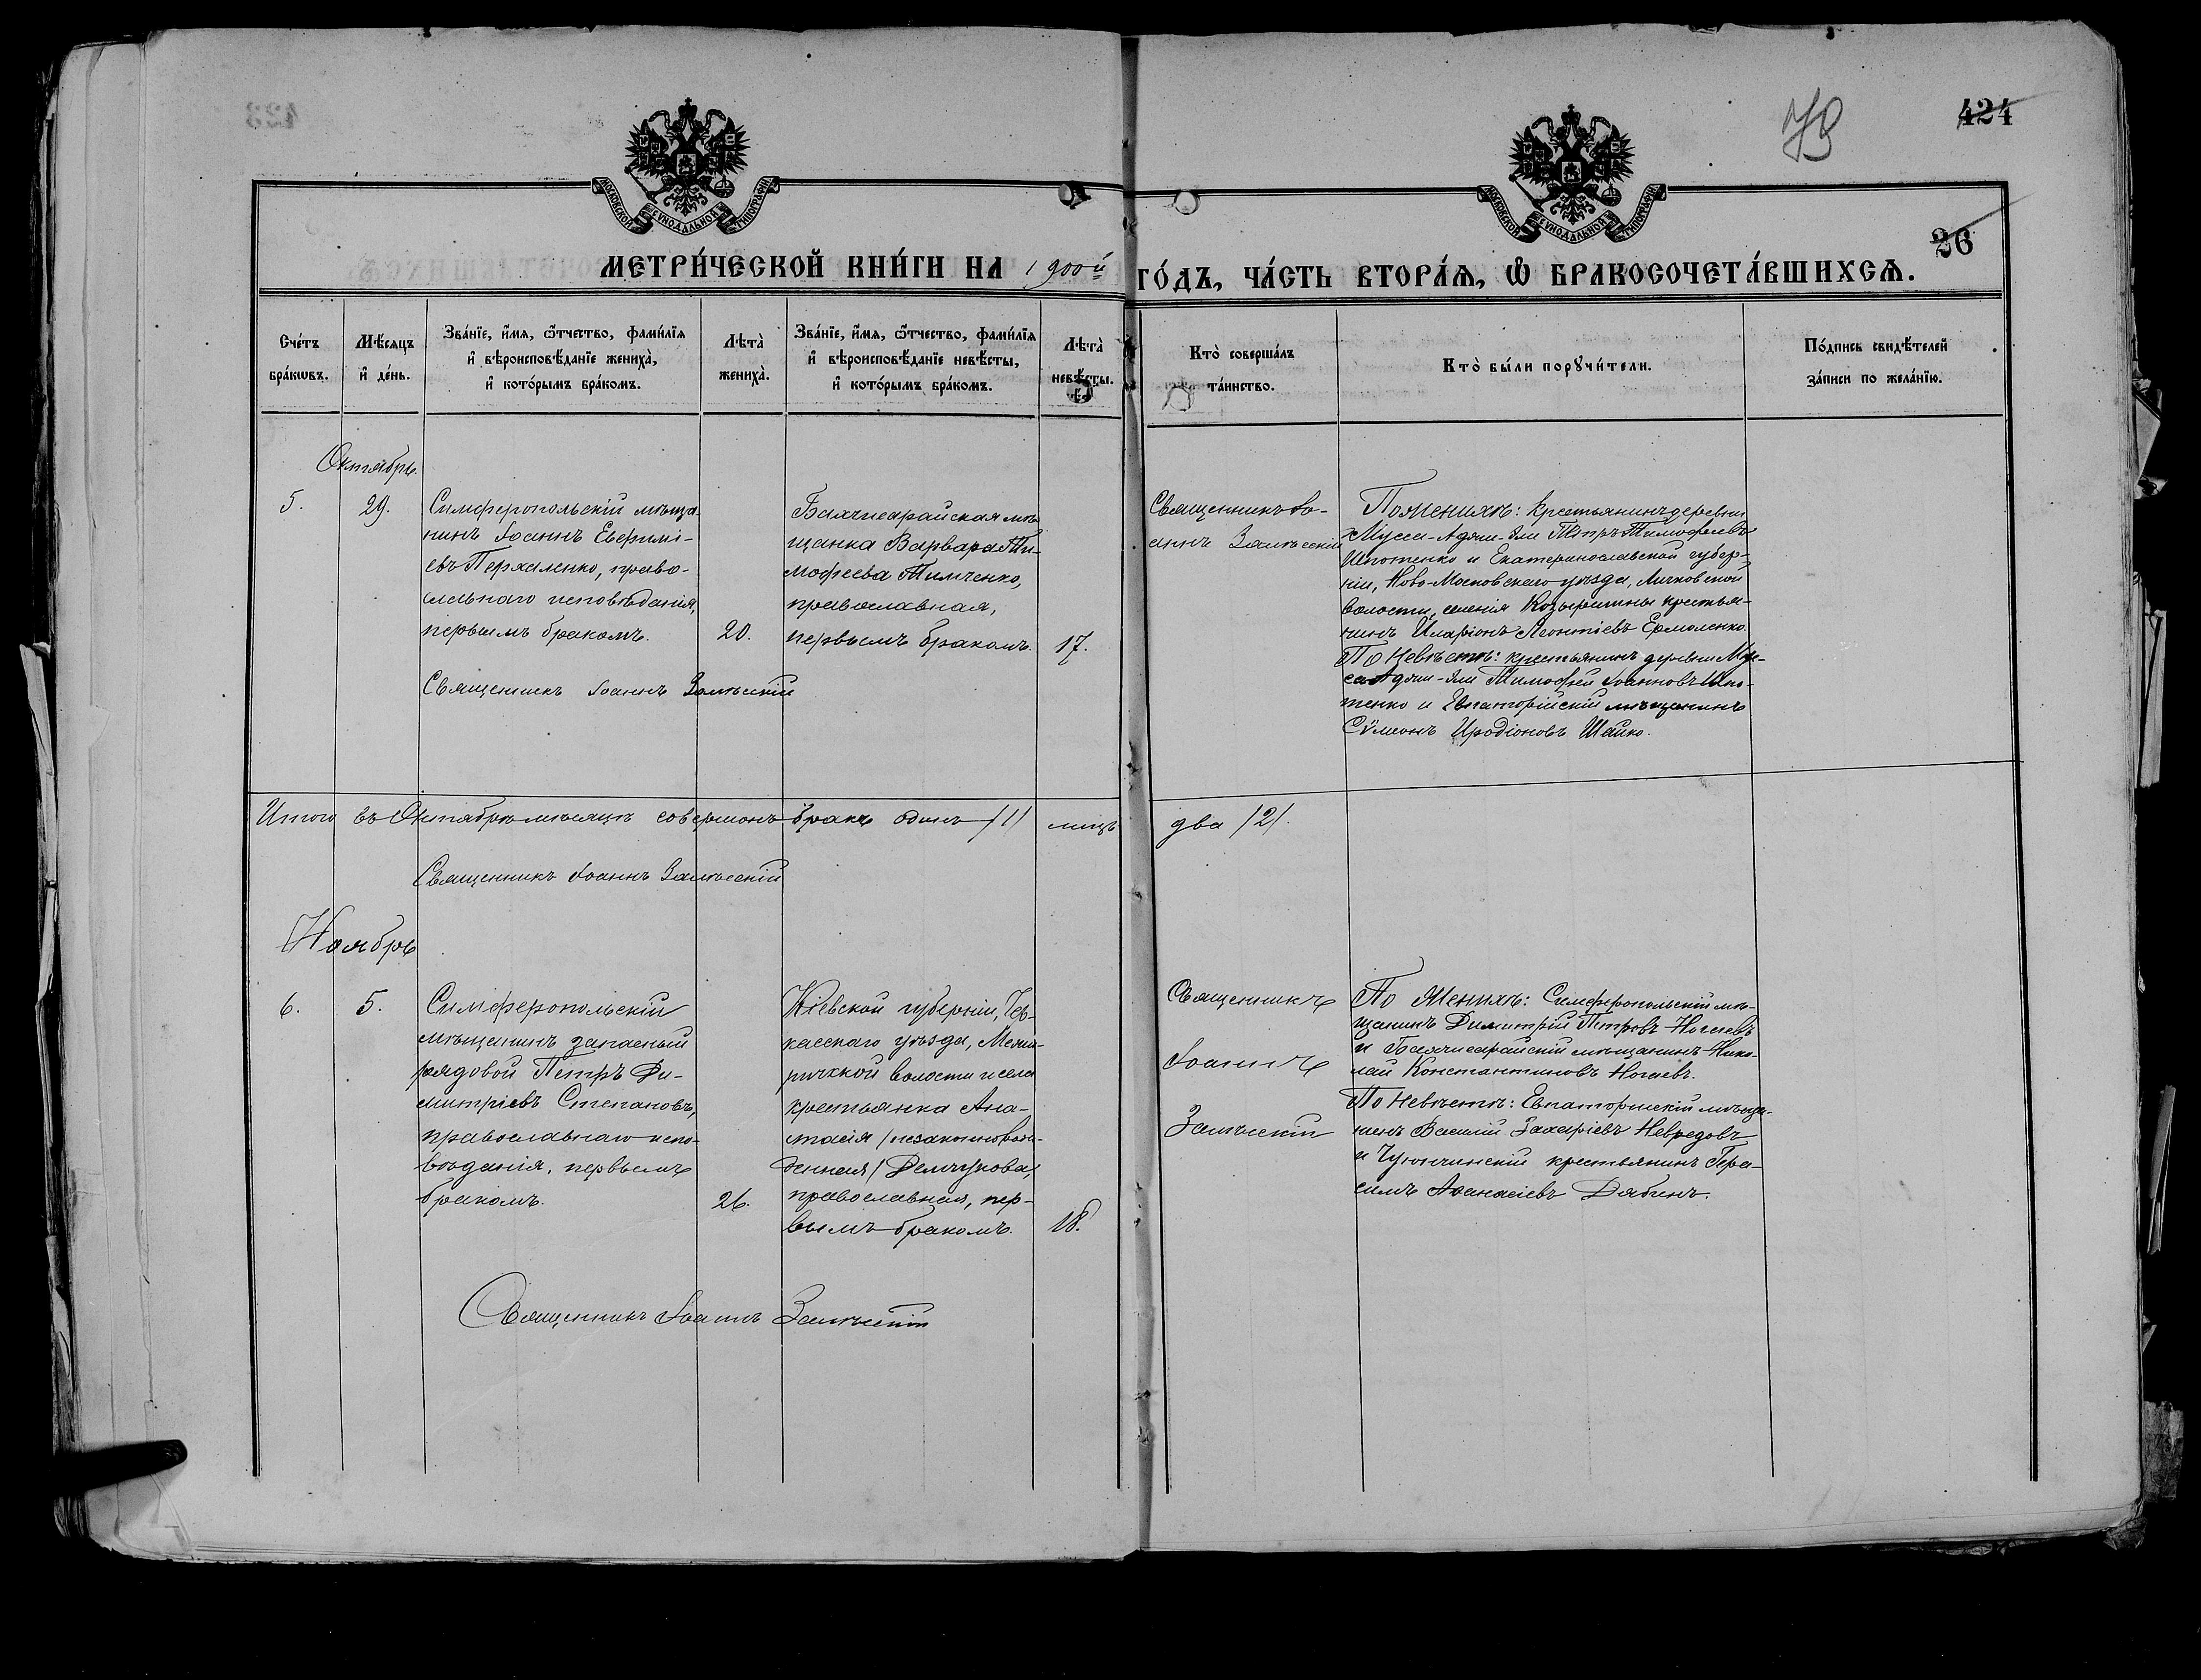 424
МОСКОВСКОЙ СѴНОДАЛЬНОЙ ТИПОГРАФІИ
МОСКОВСКОЙ СѴНОДАЛЬНОЙ ТИПОГРАФІИ
26
МЕТРИ́ЧЕСКОЙ КНИ́ГИ НА 1900й ГО́ДЪ, ЧА́СТЬ ВТОРА́Ѧ, Ѽ БРАКОСОЧЕТА́ВШИХСѦ.
Сче́тъ
бра́кѡвъ.
Мѣ́сяцъ
и҆ де́нь.
Зва́нїе, и҆́мѧ, ѻ҆́тчество, фами́лїѧ
и҆ вѣроисповѣ́данїе жениха̀,
и҆ кото́рымъ бра́комъ.
Лѣта̀
жениха̀.
Зва́нїе, и҆́мѧ, ѻ҆́тчество, фами́лїѧ
и҆ вѣроисповѣ́данїе невѣ́сты,
и҆ кото́рымъ бра́комъ.
Лѣта̀
невѣ́сты.
Кто̀ соверша́лъ
та́инство.
Кто̀ бы́ли порꙋчи́тели.
По́дпись свидѣ́телей
за́писи по жела́нїю.
Октябрь
5.
29.
Симферопольскій мѣща-
нинъ Іоаннъ Евфимі-
евъ Перхаленко, право-
славнаго исповѣданія,
первымъ бракомъ.
20.
Бахчисарайская мѣ-
щанка Варвара Ти-
мофеева Тимченко,
православная,
первымъ бракомъ.
17.
Священникъ Іо-
аннъ Залѣсскій
По женихѣ: крестьянинъ деревни
Мусса-Аджи-Эли Петръ Тимофеевъ
Шпотенко и Екатеринославской губер-
ніи, Ново-Московскаго уѣзда, Личковской
волости, селенія Козырщины крестья-
нинъ Иларіонъ Леонтіевъ Ермоленко.
По невѣстѣ: крестьянинъ деревни Мус-
са-Аджи-Эли Тимофей Іоанновъ Шпо-
тенко и Евпаторійскій мѣщанинъ
Сѵмеонъ Иродіоновъ Шейко.
Священникъ Іоаннъ Залѣсскій
Итого въ Октябрѣ мѣсяцѣ совершонъ бракъ одинъ /1/ лицъ два /2/.
Священникъ Іоаннъ Залѣсскій
Ноябрь
6.
5.
Симферопольскій
мѣщанинъ запасный
рядовой Петръ Ди-
митріевъ Степановъ,
православнаго испо-
вѣданія, первымъ
бракомъ.
26.
Кіевской губерніи, Чер-
касскаго уѣзда,
волости и села
крестьянка Ана-
стасія /незаконнорож-
денная/ Демчукова,
православная, пер-
вымъ бракомъ.
18.
Священникъ
Іоаннъ
Залѣсскій
По женихѣ: Симферопольскій мѣ-
щанинъ Димитрій Петровъ Ногаевъ
и Бахчисарайскій мѣщанинъ Нико-
лай Константиновъ Ногаевъ.
По невѣстѣ: Евпаторійскій мѣща-
нинъ Василій Захаріевъ Невредовъ
и крестьянинъ Гера-
симъ Аѳанасіевъ Дябинъ.
Священникъ Іоаннъ Залѣсскій